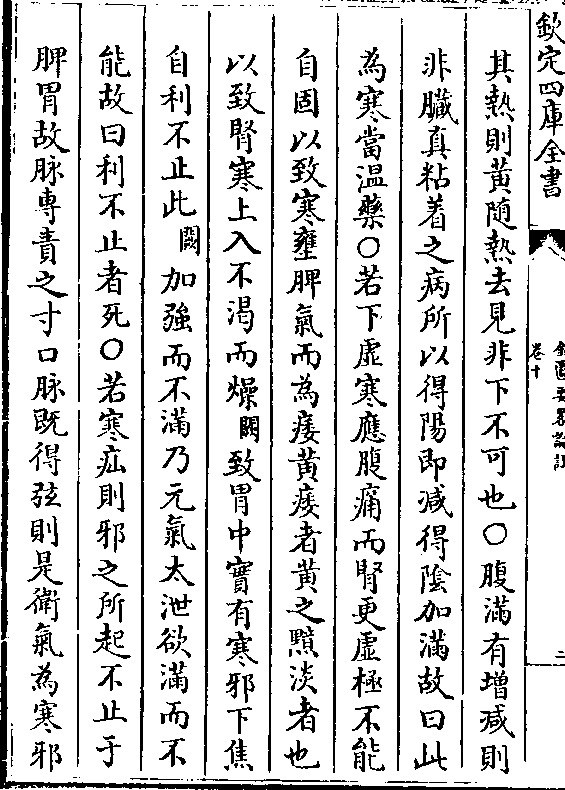 欽定四庫全書
金匱要畧論註
卷十
二
其熱則黄随熱去見非下不可也○腹滿有增减則
非臓真粘着之病所以得陽即减得陰加滿故曰此
為寒當温藥○若下虚寒應腹痛而腎更虚極不能
自固以致寒壅脾氣而為痿黄痿者黄之黯淡者也
以致腎寒上入不渇而燥闕致胃中實有寒邪下焦
自利不止此闕加強而不滿乃元氣太泄欲滿而不
能故曰利不止者死○若寒疝則邪之所起不止于
脾胃故脉專責之寸口脉既得弦則是衛氣為寒邪